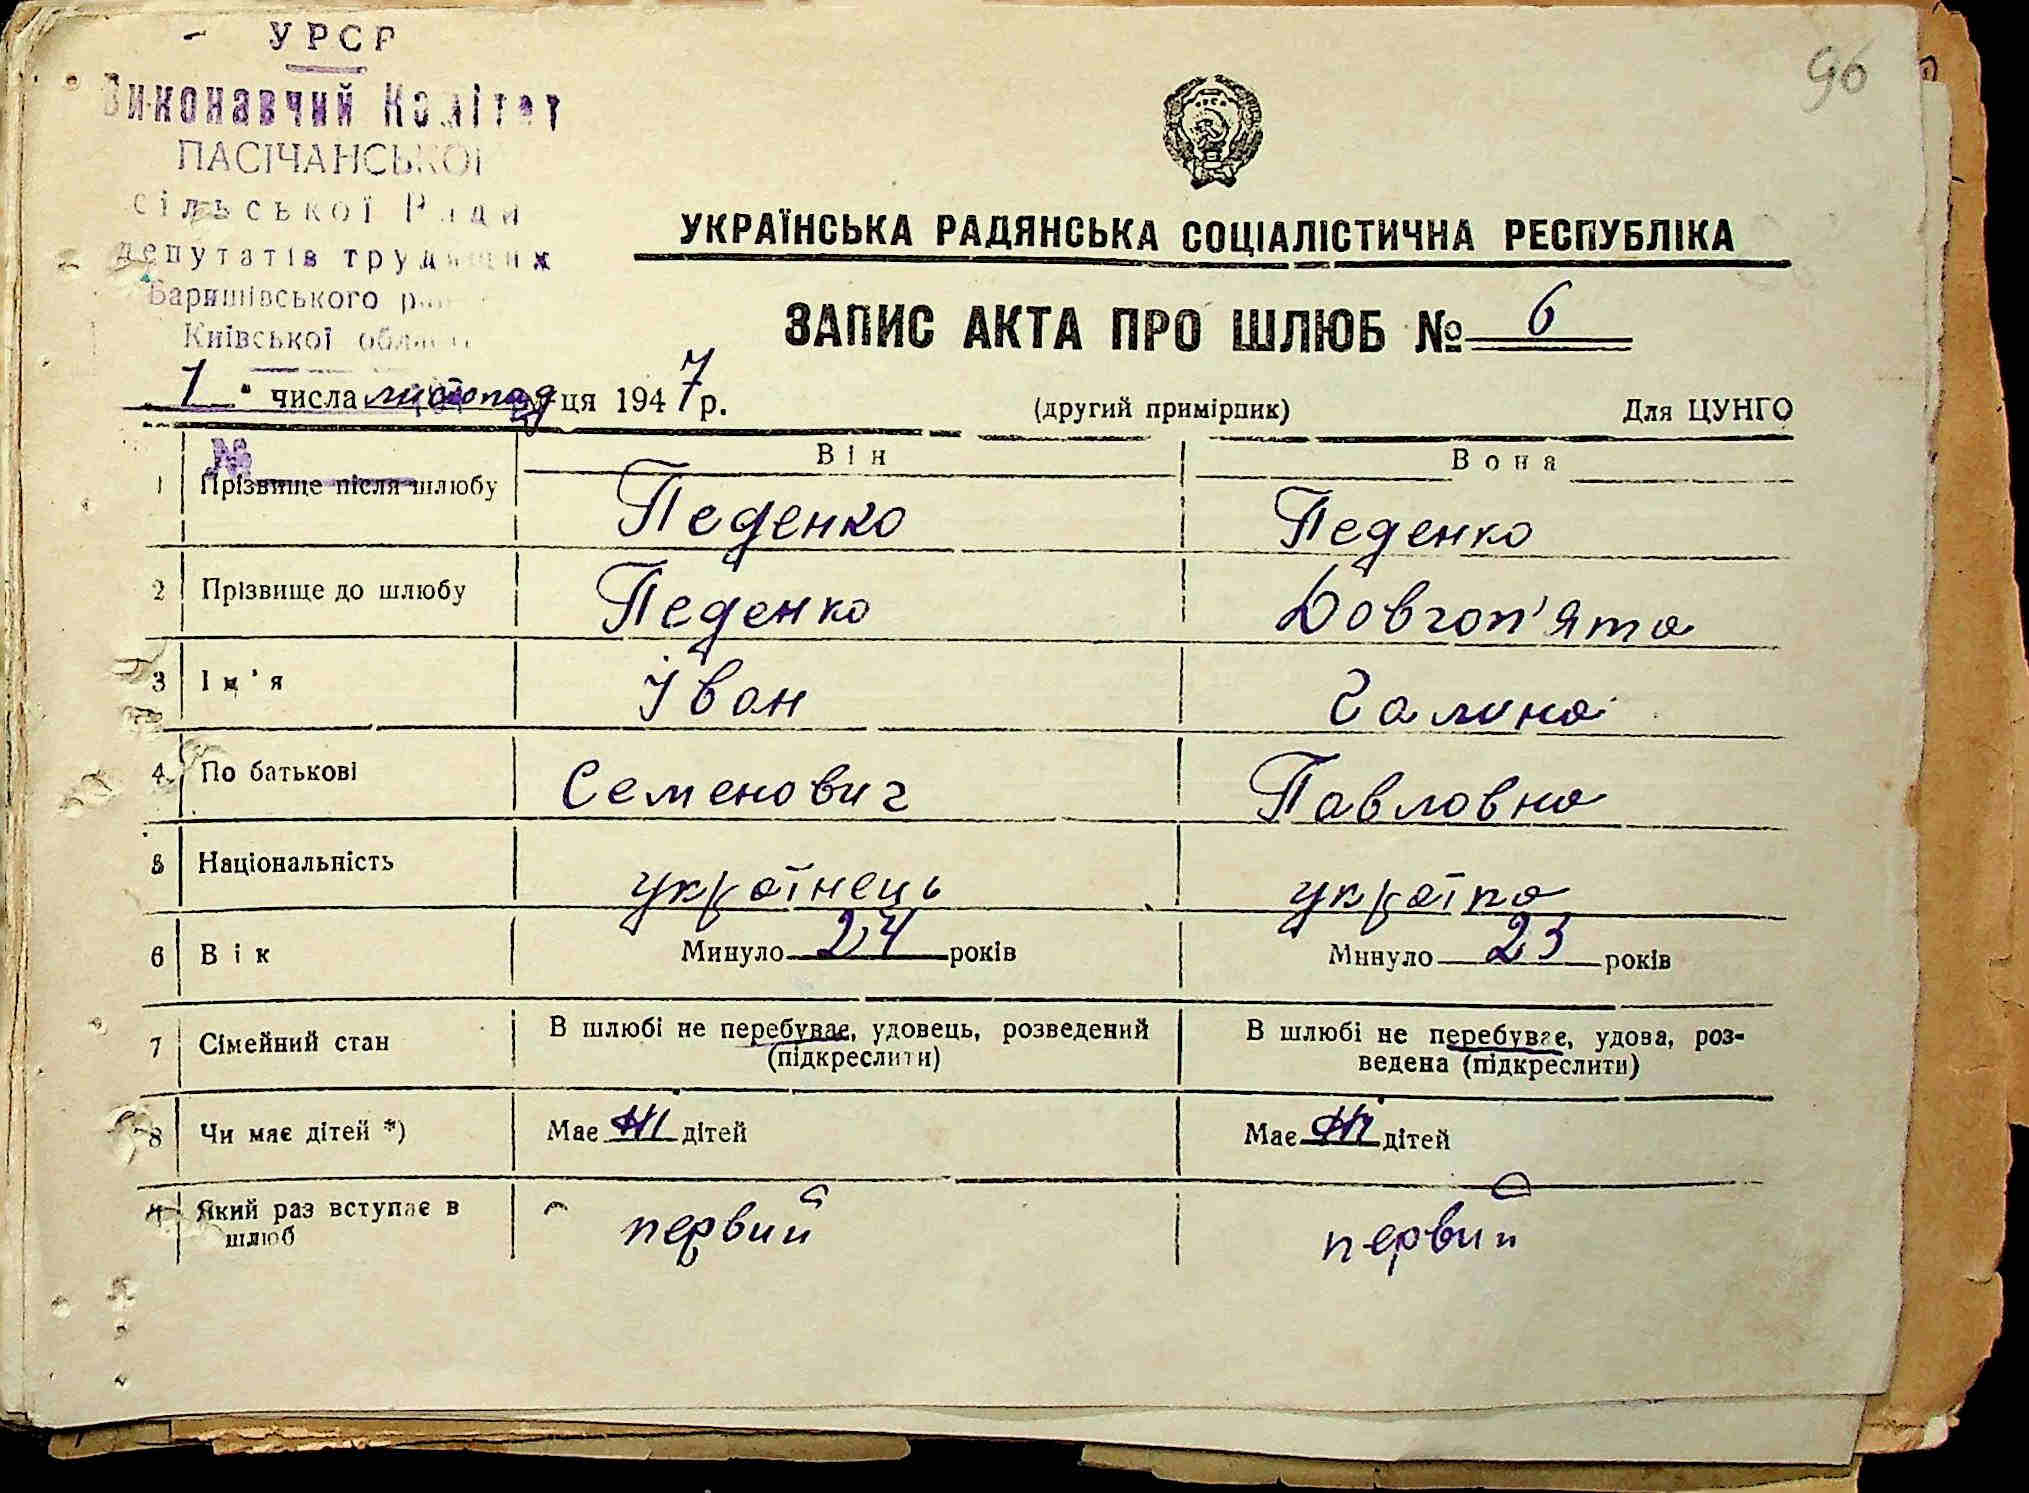 УРСР
96
Виконавчий Комітет
ПАСІЧАНСЬКОЇ
сільської Ради
депутатів трудящих
Баришівського
Київської області
УКРАЇНСЬКА РАДЯНСЬКА СОЦІАЛІСТИЧНА РЕСПУБЛІКА
ЗАПИС АКТА ПРО ШЛЮБ № 6
1 " числа листопад м-ця 1947 р. (другий примірник) Для ЦУНГО
№
Він Вона
1 Прізвище після шлюбу Педенко Педенко
2 Прізвище до шлюбу Педенко Довгоп'ята
3 Ім'я Іван Галина
4 По батькові Семенович Павловна
5 Національність українець україна
6 Вік Минуло 24 років Минуло 23 років
7 Сімейний стан В шлюбі не перебуває, удовець, розведений (підкреслити) В шлюбі не перебуває, удова, роз-
ведена (підкреслити)
8 Чи має дітей *) Має ні дітей Має ні дітей
9 Який раз вступає в шлюб первий первий